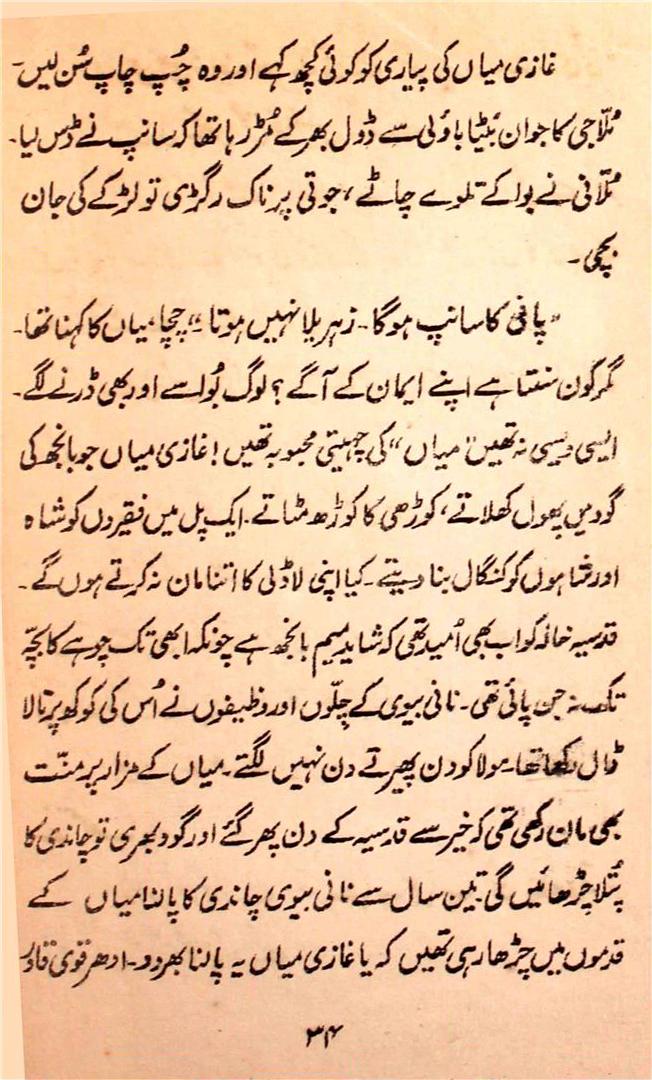 غازی میاں کی پیاری کو کوئی کچھ کہے اور وہ چُپ چاپ سُن لیں۔
مُلّا جی کا جوان بیٹا باؤلی سے ڈول بھر کے مُڑ رہا تھا کہ سانپ نے ڈس لیا۔
مُلّانی نے بوا کے تلوے چاٹے، جوتی پر ناک رگڑی تو لڑکے کی جان
بچی۔
"پانی کا سانپ ہوگا۔ زہریلا نہیں ہوتا" چچا میاں کا کہنا تھا۔
مگر کون سنتا ہے اپنے ایمان کے آگے؟ لوگ بُوا سے اور بھی ڈرنے لگے۔
ایسی ویسی نہ تھیں "میاں" کی چہیتی محبوبہ تھیں! غازی میاں جو بانجھ کی
گود میں پھول کھلاتے، کوڑھی کا کوڑھ مٹاتے۔ ایک پل میں فقیروں کو شاہ
اور شاہوں کو کنگال بنا دیتے۔ کیا اپنی لاڈلی کا اتنا مان نہ کرتے ہوں گے۔
قدسیہ خالہ کو اب بھی اُمید تھی کہ شاید میم بانجھ ہے چونکہ ابھی تک چوہے کا بچّہ
تک نہ جن پائی تھی۔ نانی بیوی کے چلّوں اور وظیفوں نے اُس کی کوکھ پر تالا
ڈال رکھا تھا۔ مولا کو دن پھیرتے دن نہیں لگتے۔ میاں کے مزار پر منّت
بھی مان رکھی تھی کہ خیر سے قدسیہ کے دن پھر گئے اور گود بھری تو چاندی کا
پُتلا چڑھائیں گی۔ تین سال سے نانی بیوی چاندی کا پالنا میاں کے
قدموں میں چڑھا رہی تھیں کہ یا غازی میاں یہ پالنا بھر دو۔ ادھر قوی قادر
۳۴